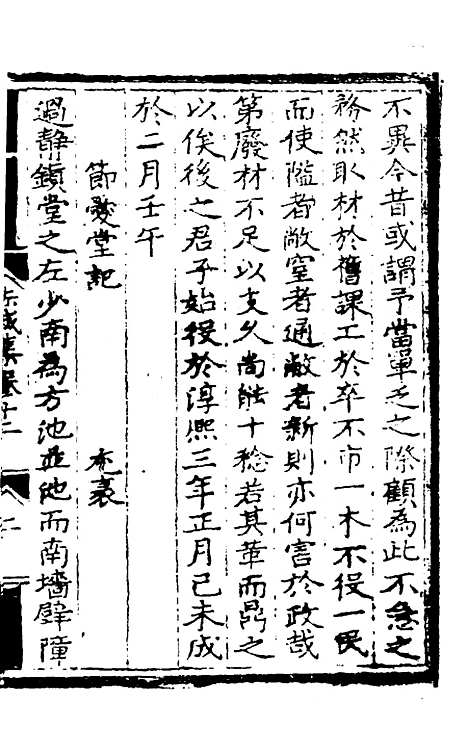 不異今昔或謂予當單乏之際顧為此不急之
務然取材於舊課工於卒不市一木不役一民
而使隘者敞窒者通敝者新則亦何害於政哉
第廢材不足以支久尚能十稔若其革而鼎之
以俟後之君子始役於淳熙三年正月己未成
於二月壬午
節愛堂記 尤袤
過靜鎮堂之左少南為方池並池而南墻壁障
赤城集卷十二